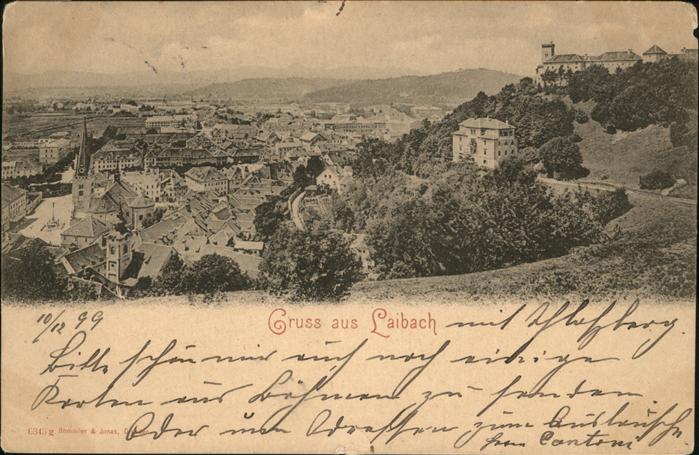 10/12 99
Gruss aus Laibach mit Schloßberg.
Bitte schön mir auch noch einige
Karten aus Böhmen zu senden
Oder um Adressen zum Austausch
6343g Römmler & Jonas,